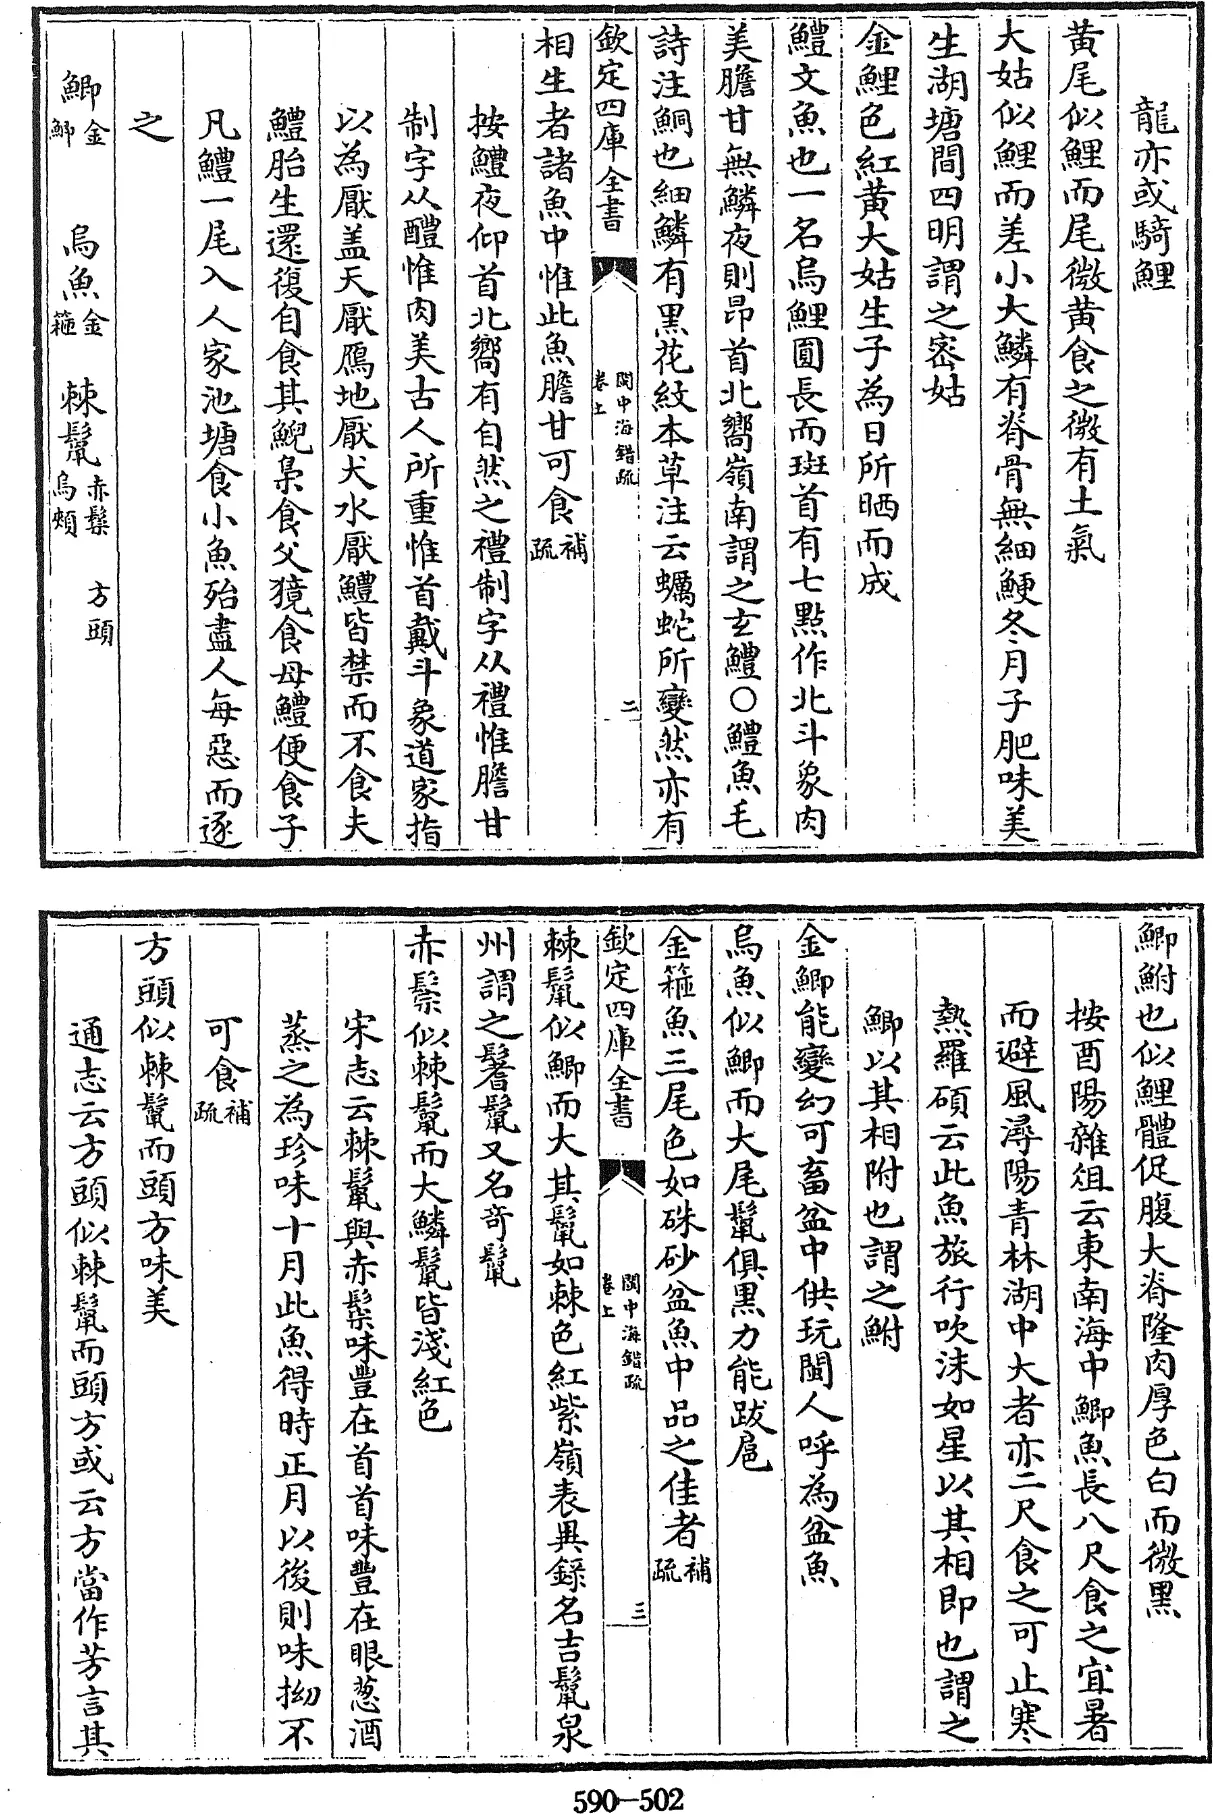 龍亦或騎鯉
黃尾似鯉而尾微黃食之微有土氣
大姑似鯉而差小大鱗有脊骨無細鯁冬月子肥味美
生湖塘間四明謂之宻姑
金鯉色紅黃大姑生子為日所晒而成
鱧文魚也一名烏鯉圓長而斑首有七㸃作北斗象肉
美膽甘無鱗夜則昂首北嚮嶺南謂之玄鱧○鱧魚毛
詩注鮦也細鱗有黑花紋本草注云蠣蛇所變然亦有
欽定四庫全書 閩中海錯疏 卷上 二
相生者諸魚中惟此魚膽甘可食補疏
按鱧夜仰首北嚮有自然之禮制字从禮惟膽甘
制字从醴惟肉美古人所重惟首戴斗象道家指
以為厭盖天厭鴈地厭犬水厭鱧皆禁而不食夫
鱧胎生還復自食其鯢梟食父獍食母鱧便食子
凡鱧一尾入人家池塘食小魚殆盡人每惡而逐
之
鯽金鯽 烏魚金箍 棘鬛赤鬃烏頰 方頭
鯽鮒也似鯉體促腹大脊隆肉厚色白而微黑
按酉陽雜俎云東南海中鯽魚長八尺食之宜暑
而避風潯陽青林湖中大者亦二尺食之可止寒
熱羅碩云此魚旅行吹沫如星以其相即也謂之
鯽以其相附也謂之鮒
金鯽能變幻可畜盆中供玩閩人呼為盆魚
烏魚似鯽而大尾鬛俱黑力能跋扈
金箍魚三尾色如硃砂盆魚中品之佳者補疏
欽定四庫全書 閩中海錯疏 卷上 三
棘鬛似鯽而大其鬛如棘色紅紫嶺表異錄名吉鬛泉
州謂之髻鬛又名奇鬛
赤鬃似棘鬛而大鱗鬛皆淺紅色
宋志云棘鬛與赤鬃味豐在首首味豐在眼葱酒
蒸之為珍味十月此魚得時正月以後則味拗不
可食補疏
方頭似棘鬛而頭方味美
通志云方頭似棘鬛而頭方或云方當作芳言其
590-502